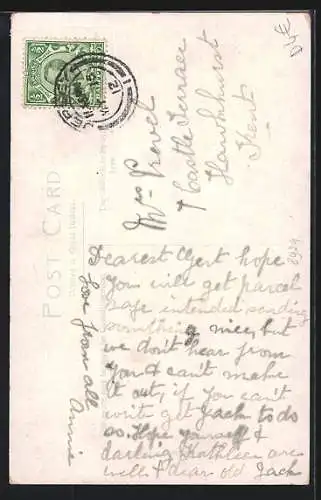 JERSEY
12
POST CARD
Mrs Prevel
7 Castle Terrace
Hawkhurst
Kent
8929
Dearest Gert hope
you will get parcel
safe intended sending
something nice, but
we don't hear from
you & can't make
it out, if you can't
write get Jack to do
so. Hope yourself &
darling Kathleen are
well & dear old Jack
love from all
Annie